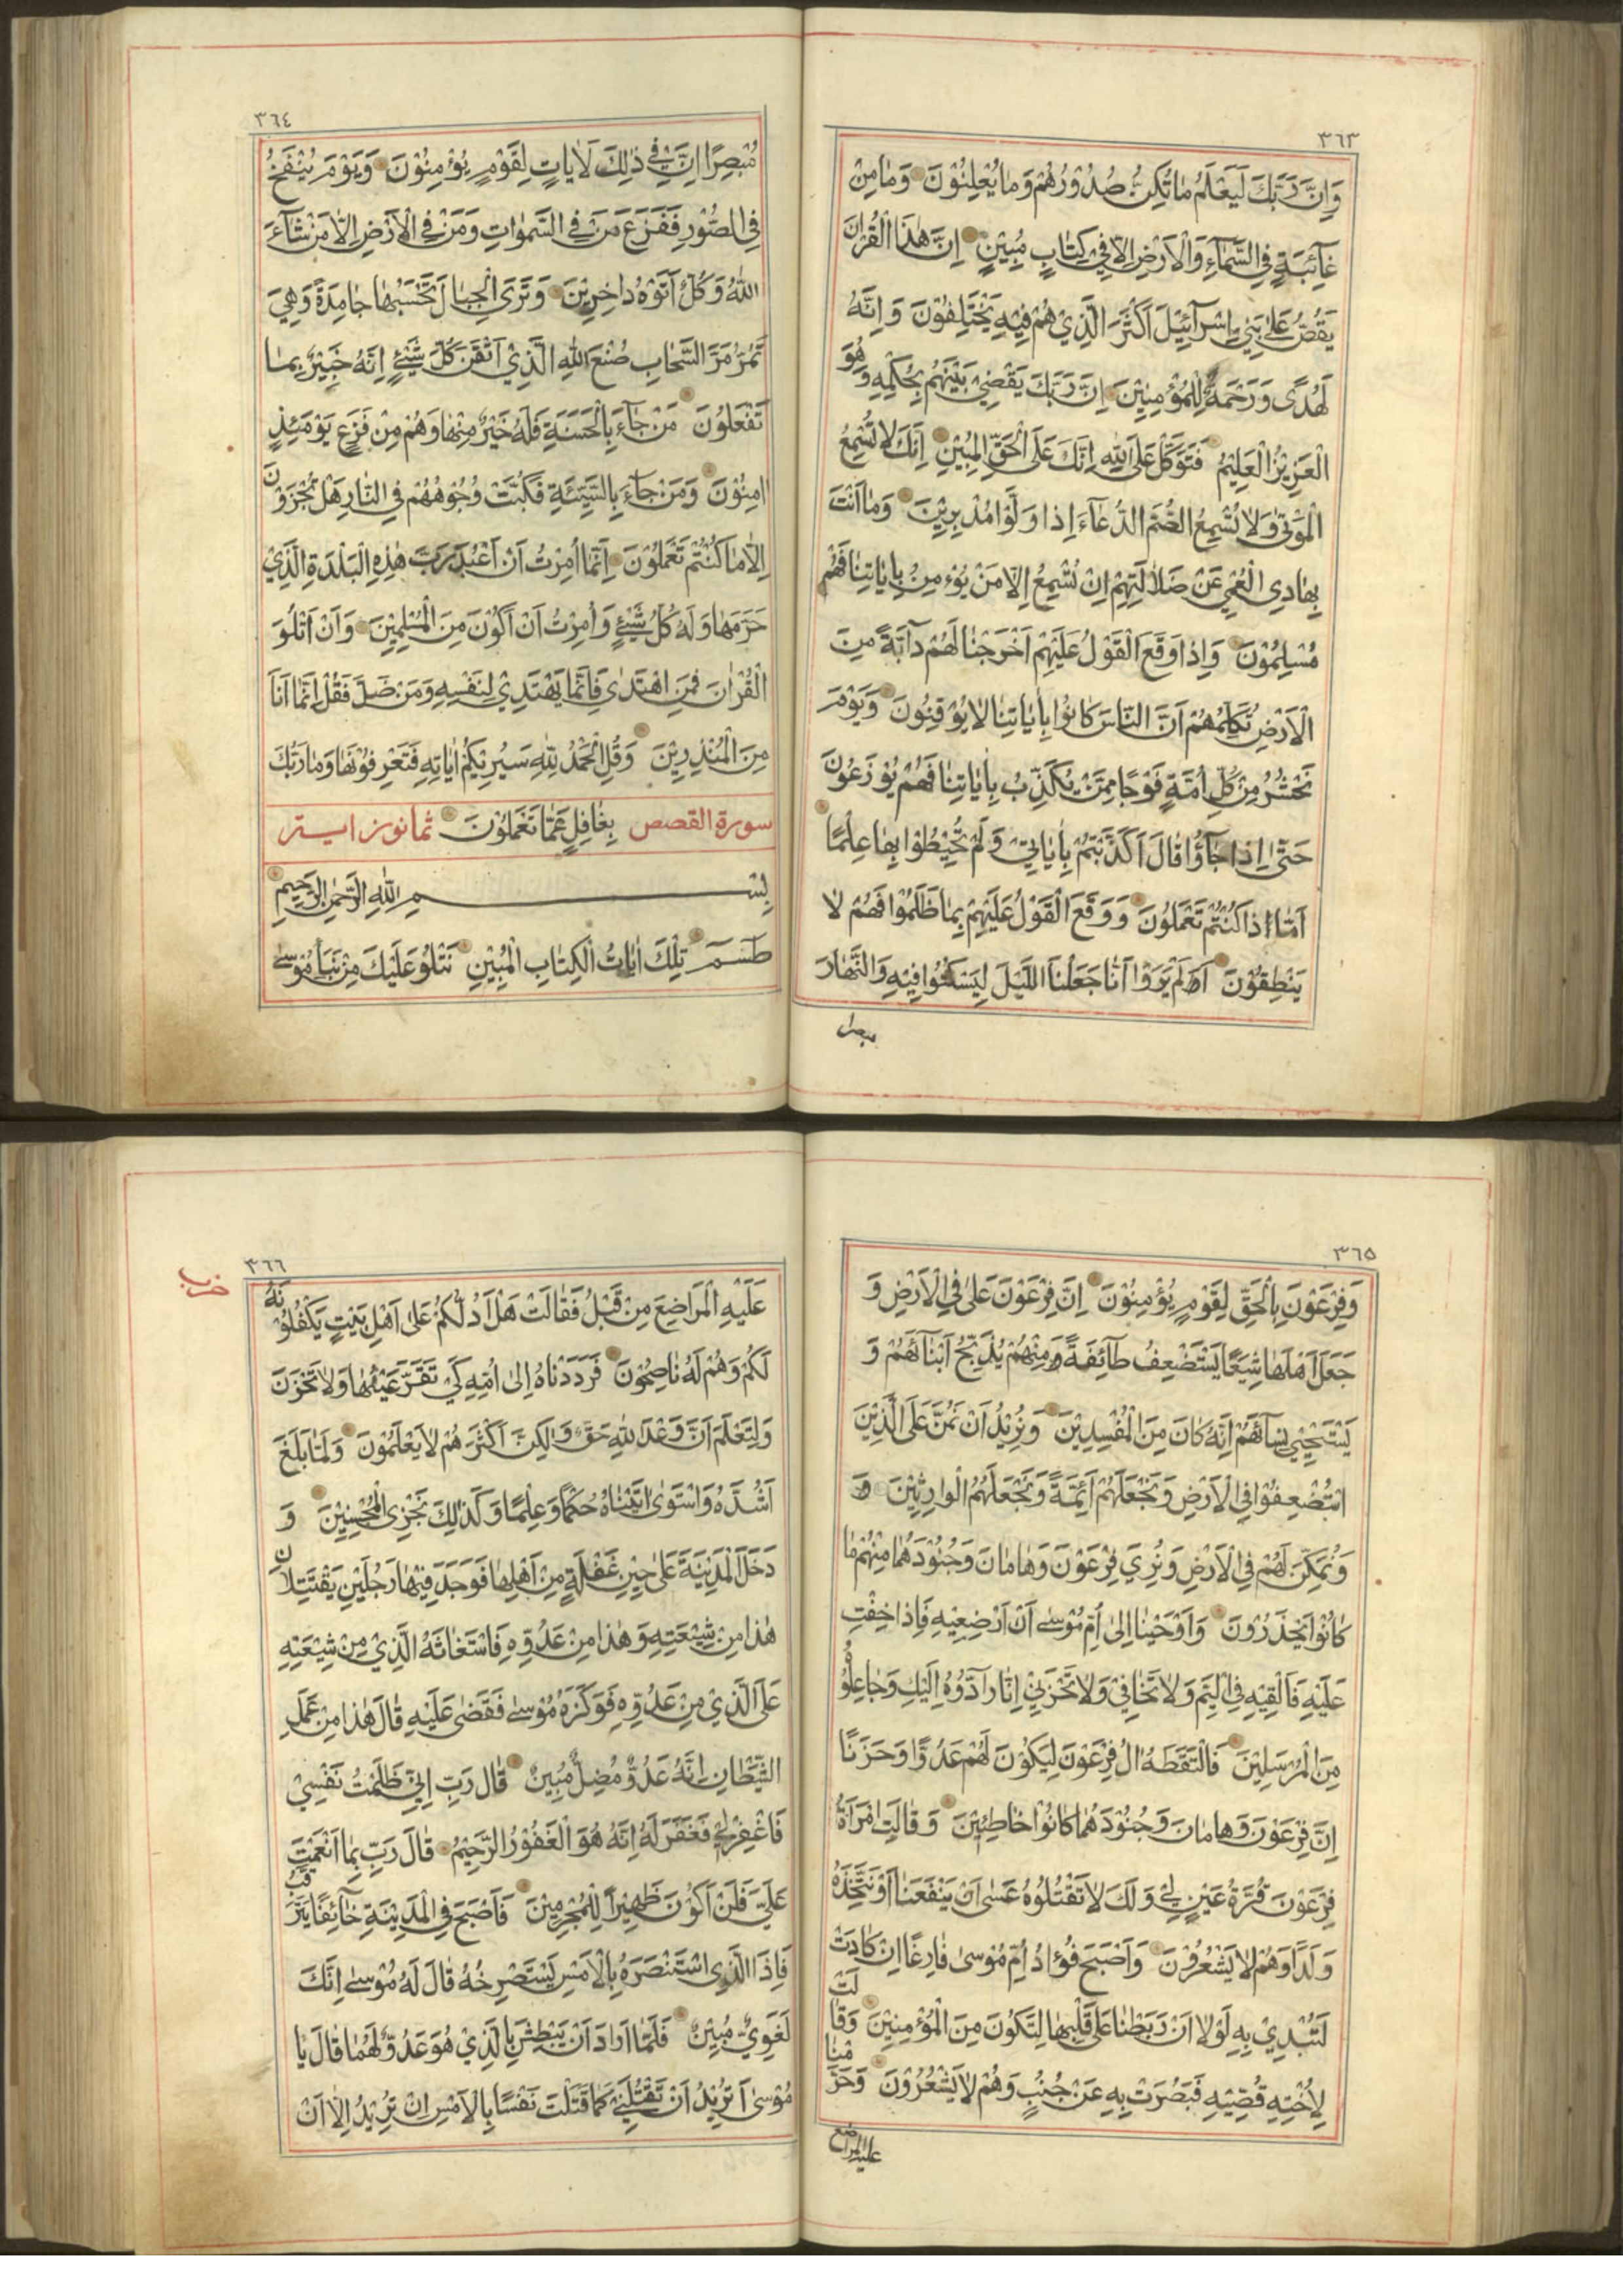 ٣٦٣
وَاِنَّ رَبَّكَ لَيَعْلَمُ مَا تُكِنُّ صُدُوْرُهُمْ وَمَا يُعْلِنُوْنَ وَمَا مِنْ
غَآئِبَةٍ فِي السَّمَآءِ وَالْاَرْضِ اِلَّا فِيْ كِتَابٍ مُبِيْنٍ اِنَّ هٰذَا الْقُرْاٰنَ
يَقُصُّ عَلٰى بَنِيْ اِسْرَآئِيْلَ اَكْثَرَ الَّذِيْ هُمْ فِيْهِ يَخْتَلِفُوْنَ وَاِنَّهُ
لَهُدًى وَرَحْمَةٌ لِلْمُؤْمِنِيْنَ اِنَّ رَبَّكَ يَقْضِيْ بَيْنَهُمْ بِحُكْمِهِ وَهُوَ
الْعَزِيْزُ الْعَلِيْمُ فَتَوَكَّلْ عَلَى اللّٰهِ اِنَّكَ عَلَى الْحَقِّ الْمُبِيْنِ اِنَّكَ لَا تُسْمِعُ
الْمَوْتٰى وَلَا تُسْمِعُ الصُّمَّ الدُّعَآءَ اِذَا وَلَّوْا مُدْبِرِيْنَ وَمَا اَنْتَ
بِهَادِي الْعُمْيِ عَنْ ضَلَالَتِهِمْ اِنْ تُسْمِعُ اِلَّا مَنْ يُؤْمِنُ بِاٰيَاتِنَا فَهُمْ
مُسْلِمُوْنَ وَاِذَا وَقَعَ الْقَوْلُ عَلَيْهِمْ اَخْرَجْنَا لَهُمْ دَآبَّةً مِنَ
الْاَرْضِ تُكَلِّمُهُمْ اَنَّ النَّاسَ كَانُوْا بِاٰيَاتِنَا لَا يُوْقِنُوْنَ وَيَوْمَ
نَحْشُرُ مِنْ كُلِّ اُمَّةٍ فَوْجًا مِمَّنْ يُكَذِّبُ بِاٰيَاتِنَا فَهُمْ يُوْزَعُوْنَ
حَتّٰى اِذَا جَآؤُا قَالَ اَكَذَّبْتُمْ بِاٰيَاتِيْ وَلَمْ تُحِيْطُوْا بِهَا عِلْمًا
اَمَّا اِذَا كُنْتُمْ تَعْمَلُوْنَ وَوَقَعَ الْقَوْلُ عَلَيْهِمْ بِمَا ظَلَمُوْا فَهُمْ لَا
يَنْطِقُوْنَ اَلَمْ يَرَوْا اَنَّا جَعَلْنَا اللَّيْلَ لِيَسْكُنُوْا فِيْهِ وَالنَّهَارَ
مبصرا
٣٦٤
مُبْصِرًا اِنَّ فِيْ ذٰلِكَ لَاٰيَاتٍ لِقَوْمٍ يُؤْمِنُوْنَ وَيَوْمَ يُنْفَخُ
فِي الصُّوْرِ فَفَزِعَ مَنْ فِي السَّمٰوَاتِ وَمَنْ فِي الْاَرْضِ اِلَّا مَنْ شَآءَ
اللّٰهُ وَكُلٌّ اَتَوْهُ دَاخِرِيْنَ وَتَرَى الْجِبَالَ تَحْسَبُهَا جَامِدَةً وَهِيَ
تَمُرُّ مَرَّ السَّحَابِ صُنْعَ اللّٰهِ الَّذِيْ اَتْقَنَ كُلَّ شَيْئٍ اِنَّهُ خَبِيْرٌ بِمَا
تَفْعَلُوْنَ مَنْ جَآءَ بِالْحَسَنَةِ فَلَهُ خَيْرٌ مِنْهَا وَهُمْ مِنْ فَزَعٍ يَوْمَئِذٍ
اٰمِنُوْنَ وَمَنْ جَآءَ بِالسَّيِّئَةِ فَكُبَّتْ وُجُوْهُهُمْ فِي النَّارِ هَلْ تُجْزَوْنَ
اِلَّا مَا كُنْتُمْ تَعْمَلُوْنَ اِنَّمَا اُمِرْتُ اَنْ اَعْبُدَ رَبَّ هٰذِهِ الْبَلْدَةِ الَّذِيْ
حَرَّمَهَا وَلَهُ كُلُّ شَيْئٍ وَاُمِرْتُ اَنْ اَكُوْنَ مِنَ الْمُسْلِمِيْنَ وَاَنْ اَتْلُوَ
الْقُرْاٰنَ فَمَنِ اهْتَدٰى فَاِنَّمَا يَهْتَدِيْ لِنَفْسِهِ وَمَنْ ضَلَّ فَقُلْ اِنَّمَا اَنَا
مِنَ الْمُنْذِرِيْنَ وَقُلِ الْحَمْدُ لِلّٰهِ سَيُرِيْكُمْ اٰيَاتِهِ فَتَعْرِفُوْنَهَا وَمَا رَبُّكَ
سورة القصص بِغَافِلٍ عَمَّا تَعْمَلُوْنَ ثمانون ايتر
بِسْمِ اللّٰهِ الرَّحْمٰنِ الرَّحِيْمِ
طٰسٓمٓ تِلْكَ اٰيَاتُ الْكِتَابِ الْمُبِيْنِ نَتْلُوْ عَلَيْكَ مِنْ نَبَأِ مُوْسٰى
٣٦٥
وَفِرْعَوْنَ بِالْحَقِّ لِقَوْمٍ يُؤْمِنُوْنَ اِنَّ فِرْعَوْنَ عَلٰى فِي الْاَرْضِ وَ
جَعَلَ اَهْلَهَا شِيَعًا يَسْتَضْعِفُ طَآئِفَةً مِنْهُمْ يُذَبِّحُ اَبْنَآئَهُمْ وَ
يَسْتَحْيِيْ نِسَآئَهُمْ اِنَّهُ كَانَ مِنَ الْمُفْسِدِيْنَ وَنُرِيْدُ اَنْ نَمُنَّ عَلَى الَّذِيْنَ
اسْتُضْعِفُوْا فِي الْاَرْضِ وَنَجْعَلَهُمْ اَئِمَّةً وَنَجْعَلَهُمُ الْوَارِثِيْنَ وَ
وَنُمَكِّنَ لَهُمْ فِي الْاَرْضِ وَنُرِيَ فِرْعَوْنَ وَهَامَانَ وَجُنُوْدَهُمَا مِنْهُمْ مَا
كَانُوْا يَحْذَرُوْنَ وَاَوْحَيْنَا اِلٰى اُمِّ مُوْسٰى اَنْ اَرْضِعِيْهِ فَاِذَا خِفْتِ
عَلَيْهِ فَاَلْقِيْهِ فِي الْيَمِّ وَلَا تَخَافِيْ وَلَا تَحْزَنِيْ اِنَّا رَآدُّوْهُ اِلَيْكِ وَجَاعِلُوْهُ
مِنَ الْمُرْسَلِيْنَ فَالْتَقَطَهُ اٰلُ فِرْعَوْنَ لِيَكُوْنَ لَهُمْ عَدُوًّا وَحَزَنًا
اِنَّ فِرْعَوْنَ وَهَامَانَ وَجُنُوْدَهُمَا كَانُوْا خَاطِئِيْنَ وَقَالَتِ امْرَاَةُ
فِرْعَوْنَ قُرَّةُ عَيْنٍ لِيْ وَلَكَ لَا تَقْتُلُوْهُ عَسٰى اَنْ يَنْفَعَنَا اَوْ نَتَّخِذَهُ
وَلَدًا وَهُمْ لَا يَشْعُرُوْنَ وَاَصْبَحَ فُؤَادُ اُمِّ مُوْسٰى فَارِغًا اِنْ كَادَتْ
لَتُبْدِيْ بِهِ لَوْلَا اَنْ رَبَطْنَا عَلٰى قَلْبِهَا لِتَكُوْنَ مِنَ الْمُؤْمِنِيْنَ وَقَالَتْ
لِاُخْتِهِ قُصِّيْهِ فَبَصُرَتْ بِهِ عَنْ جُنُبٍ وَهُمْ لَا يَشْعُرُوْنَ وَحَرَّمْنَا
عليه المراضع
٣٦٦
حزب
عَلَيْهِ الْمَرَاضِعَ مِنْ قَبْلُ فَقَالَتْ هَلْ اَدُلُّكُمْ عَلٰى اَهْلِ بَيْتٍ يَكْفُلُوْنَهُ
لَكُمْ وَهُمْ لَهُ نَاصِحُوْنَ فَرَدَدْنَاهُ اِلٰى اُمِّهِ كَيْ تَقَرَّ عَيْنُهَا وَلَا تَحْزَنَ
وَلِتَعْلَمَ اَنَّ وَعْدَ اللّٰهِ حَقٌّ وَلٰكِنَّ اَكْثَرَهُمْ لَا يَعْلَمُوْنَ وَلَمَّا بَلَغَ
اَشُدَّهُ وَاسْتَوٰى اٰتَيْنَاهُ حُكْمًا وَعِلْمًا وَكَذٰلِكَ نَجْزِي الْمُحْسِنِيْنَ وَ
دَخَلَ الْمَدِيْنَةَ عَلٰى حِيْنِ غَفْلَةٍ مِنْ اَهْلِهَا فَوَجَدَ فِيْهَا رَجُلَيْنِ يَقْتَتِلَانِ
هٰذَا مِنْ شِيْعَتِهِ وَهٰذَا مِنْ عَدُوِّهِ فَاسْتَغَاثَهُ الَّذِيْ مِنْ شِيْعَتِهِ
عَلَى الَّذِيْ مِنْ عَدُوِّهِ فَوَكَزَهُ مُوْسٰى فَقَضٰى عَلَيْهِ قَالَ هٰذَا مِنْ عَمَلِ
الشَّيْطَانِ اِنَّهُ عَدُوٌّ مُضِلٌّ مُبِيْنٌ قَالَ رَبِّ اِنِّيْ ظَلَمْتُ نَفْسِيْ
فَاغْفِرْ لِيْ فَغَفَرَ لَهُ اِنَّهُ هُوَ الْغَفُوْرُ الرَّحِيْمُ قَالَ رَبِّ بِمَا اَنْعَمْتَ
عَلَيَّ فَلَنْ اَكُوْنَ ظَهِيْرًا لِلْمُجْرِمِيْنَ فَاَصْبَحَ فِي الْمَدِيْنَةِ خَآئِفًا يَتَرَقَّبُ
فَاِذَا الَّذِي اسْتَنْصَرَهُ بِالْاَمْسِ يَسْتَصْرِخُهُ قَالَ لَهُ مُوْسٰى اِنَّكَ
لَغَوِيٌّ مُبِيْنٌ فَلَمَّا اَرَادَ اَنْ يَبْطِشَ بِالَّذِيْ هُوَ عَدُوٌّ لَهُمَا قَالَ يَا
مُوْسٰى اَتُرِيْدُ اَنْ تَقْتُلَنِيْ كَمَا قَتَلْتَ نَفْسًا بِالْاَمْسِ اِنْ تُرِيْدُ اِلَّا اَنْ